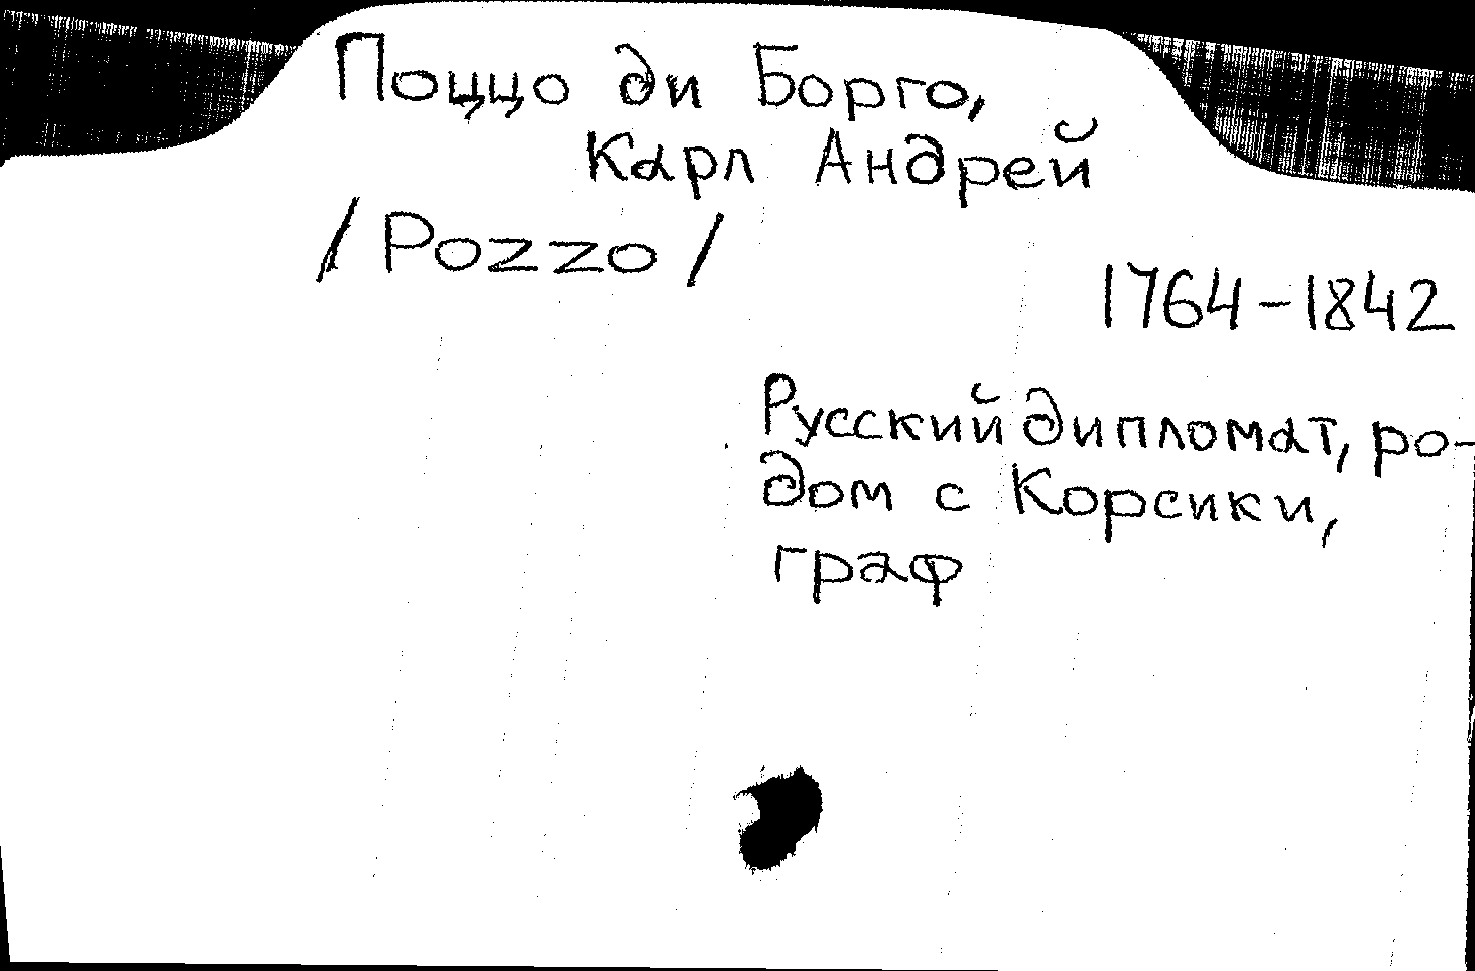 Поццо ди Борго,
Карл Андрей
/Pozzo/
1764-1842
Русский дипломат, ро-
дом с Корсики,
граф